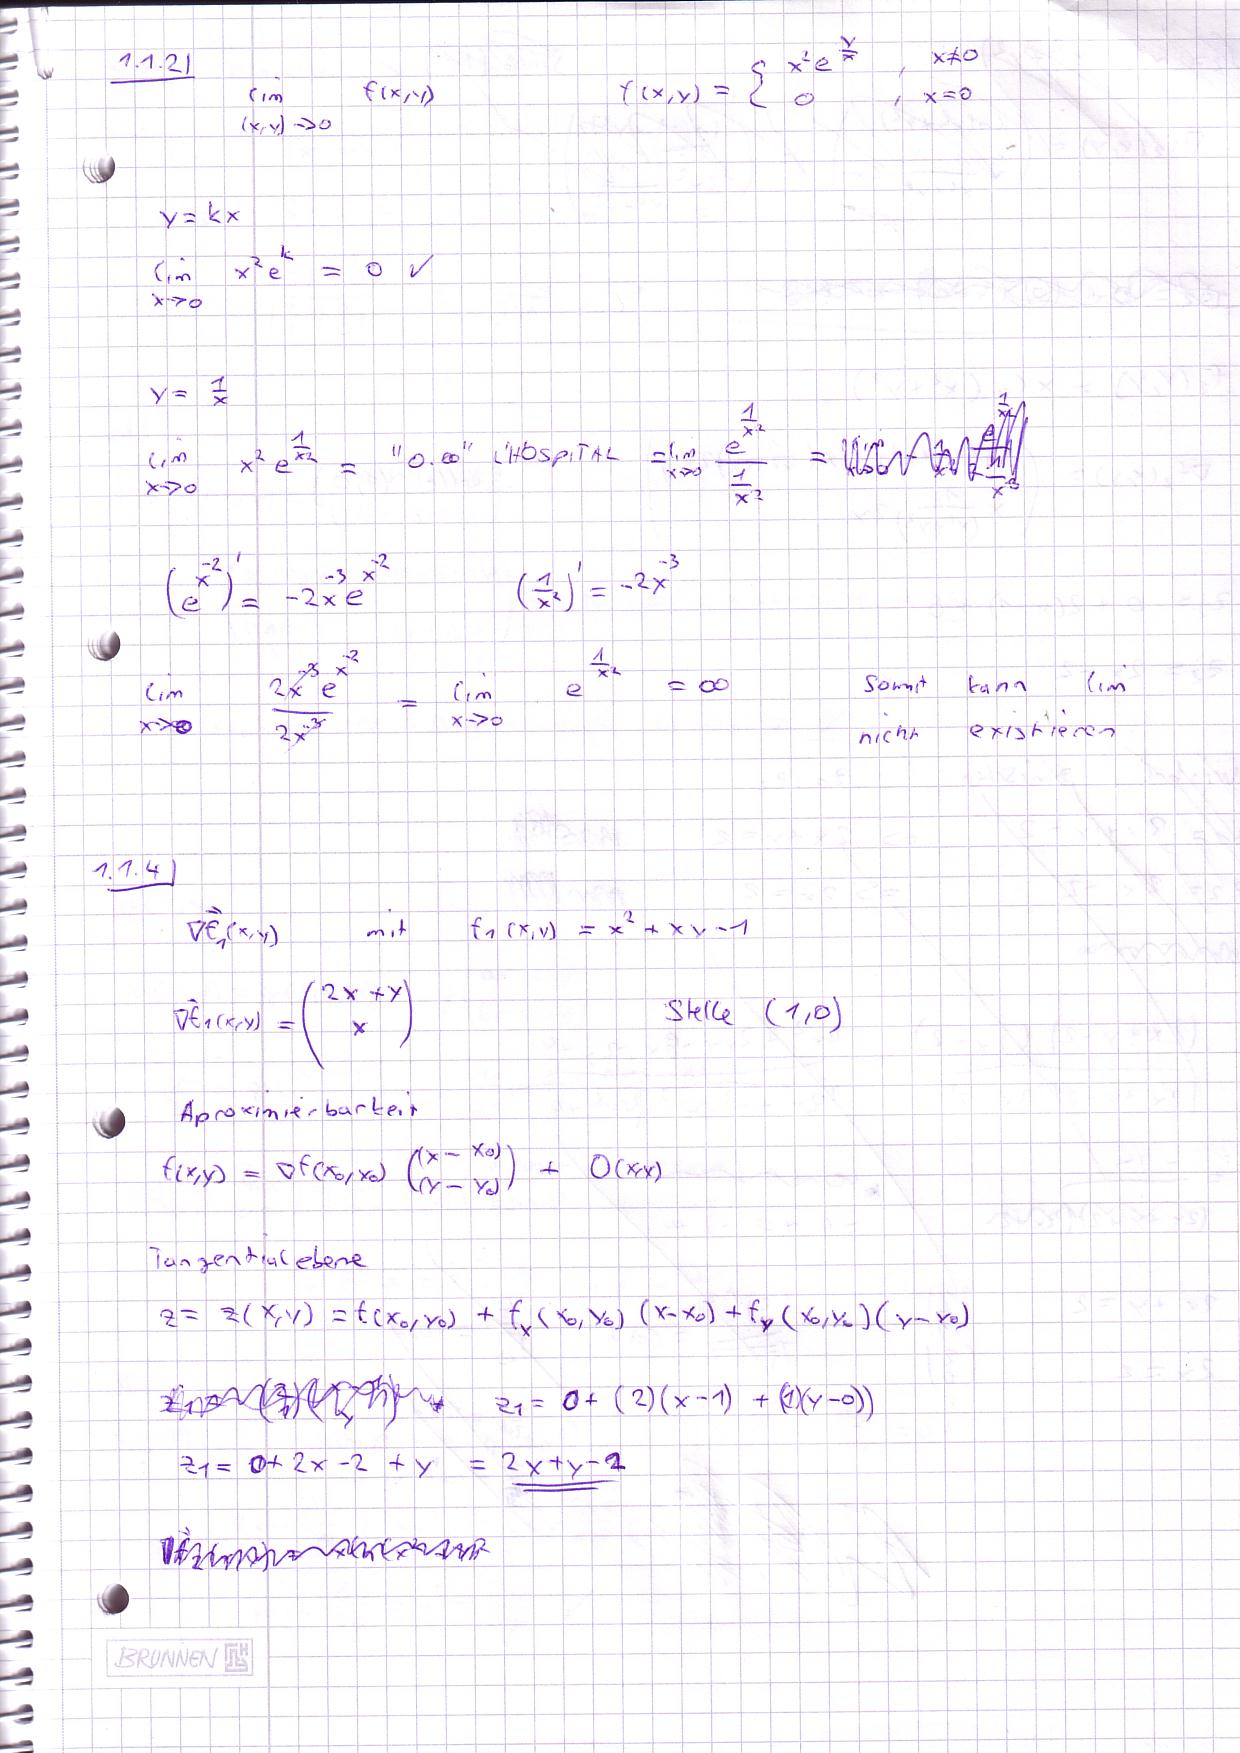 1.1.2)
lim f(x,y) f(x,y) = { x² e^(y/x) , x≠0
(x,y)→0 0 , x=0
y = kx
lim x² e^k = 0 ✓
x→0
y = 1/x
lim x² e^(1/x²) = "0.∞" L'HOSPITAL = lim e^(1/x²) / (1/x²) =
x→0 x→0
(e^(x^-2))' = -2x^-3 e^(x^-2) (1/x²)' = -2x^-3
lim 2x^-3 e^(x^-2) / 2x^-3 = lim e^(1/x²) = ∞ somit kann lim
x→0 x→0 nicht existieren
1.1.4)
∇f⃗₁(x,y) mit f₁(x,y) = x² + xy - 1
∇f⃗₁(x,y) = (2x + y
x) Stelle (1,0)
Aproximierbarkeit
f(x,y) = ∇f(x₀,x₀) ((x - x₀)
(y - y₀)) + O(x,x)
Tangentialebene
z = z(x,y) = f(x₀,y₀) + fₓ(x₀,y₀)(x-x₀) + f_y(x₀,y₀)(y-y₀)
z₁ = 0 + (2)(x-1) + (1)(y-0))
z₁ = 0 + 2x - 2 + y = 2x + y - 2
BRUNNEN